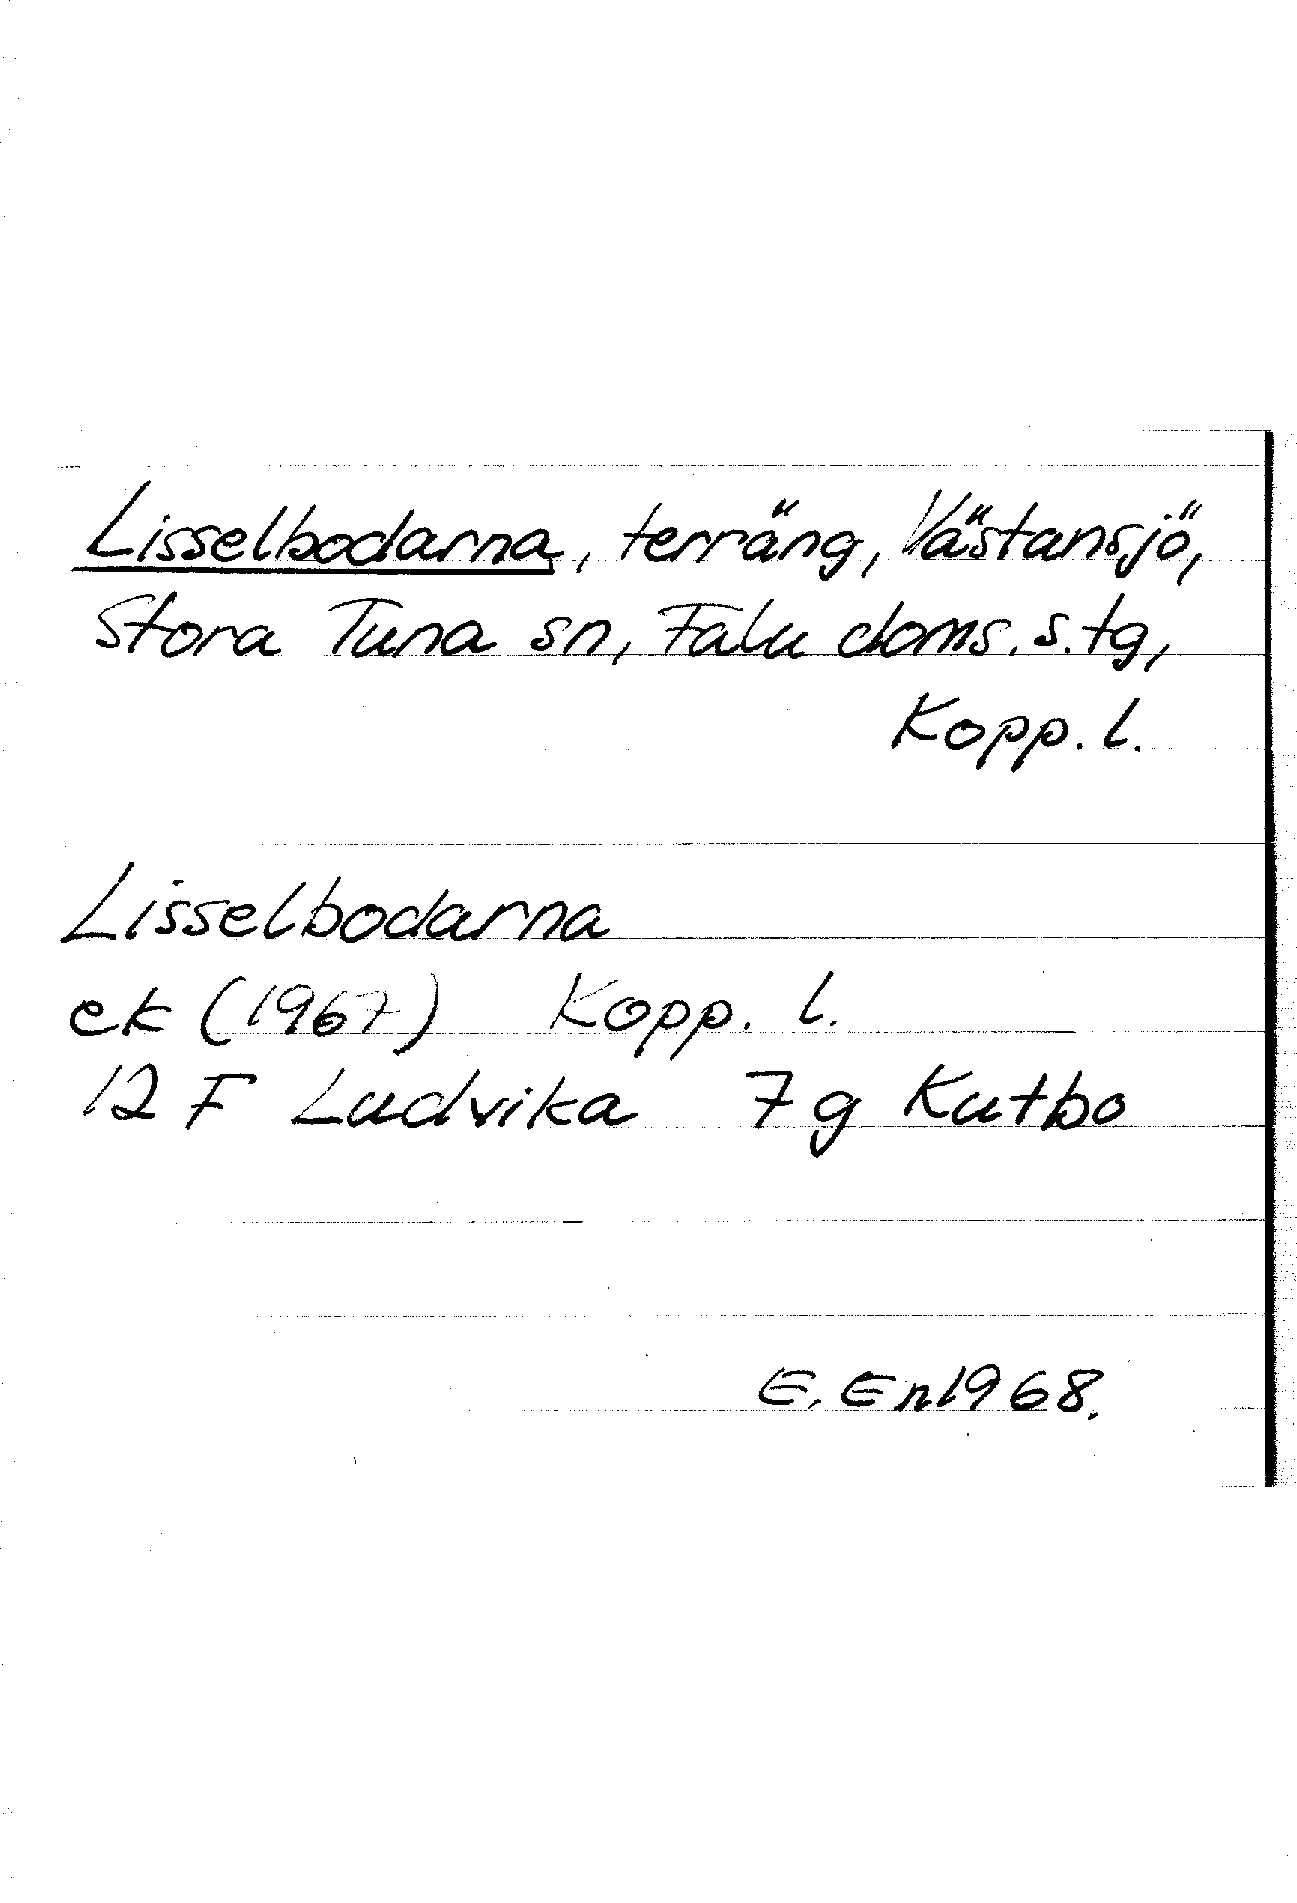 Lisselbodarna, terräng, Västansjö,
Stora Tuna sn, Falu doms. s. tg,
Kopp. l.
Lisselbodarna
ek (1967) Kopp. l.
12 F Ludvika 7 g Kutbo
E. En 1968.